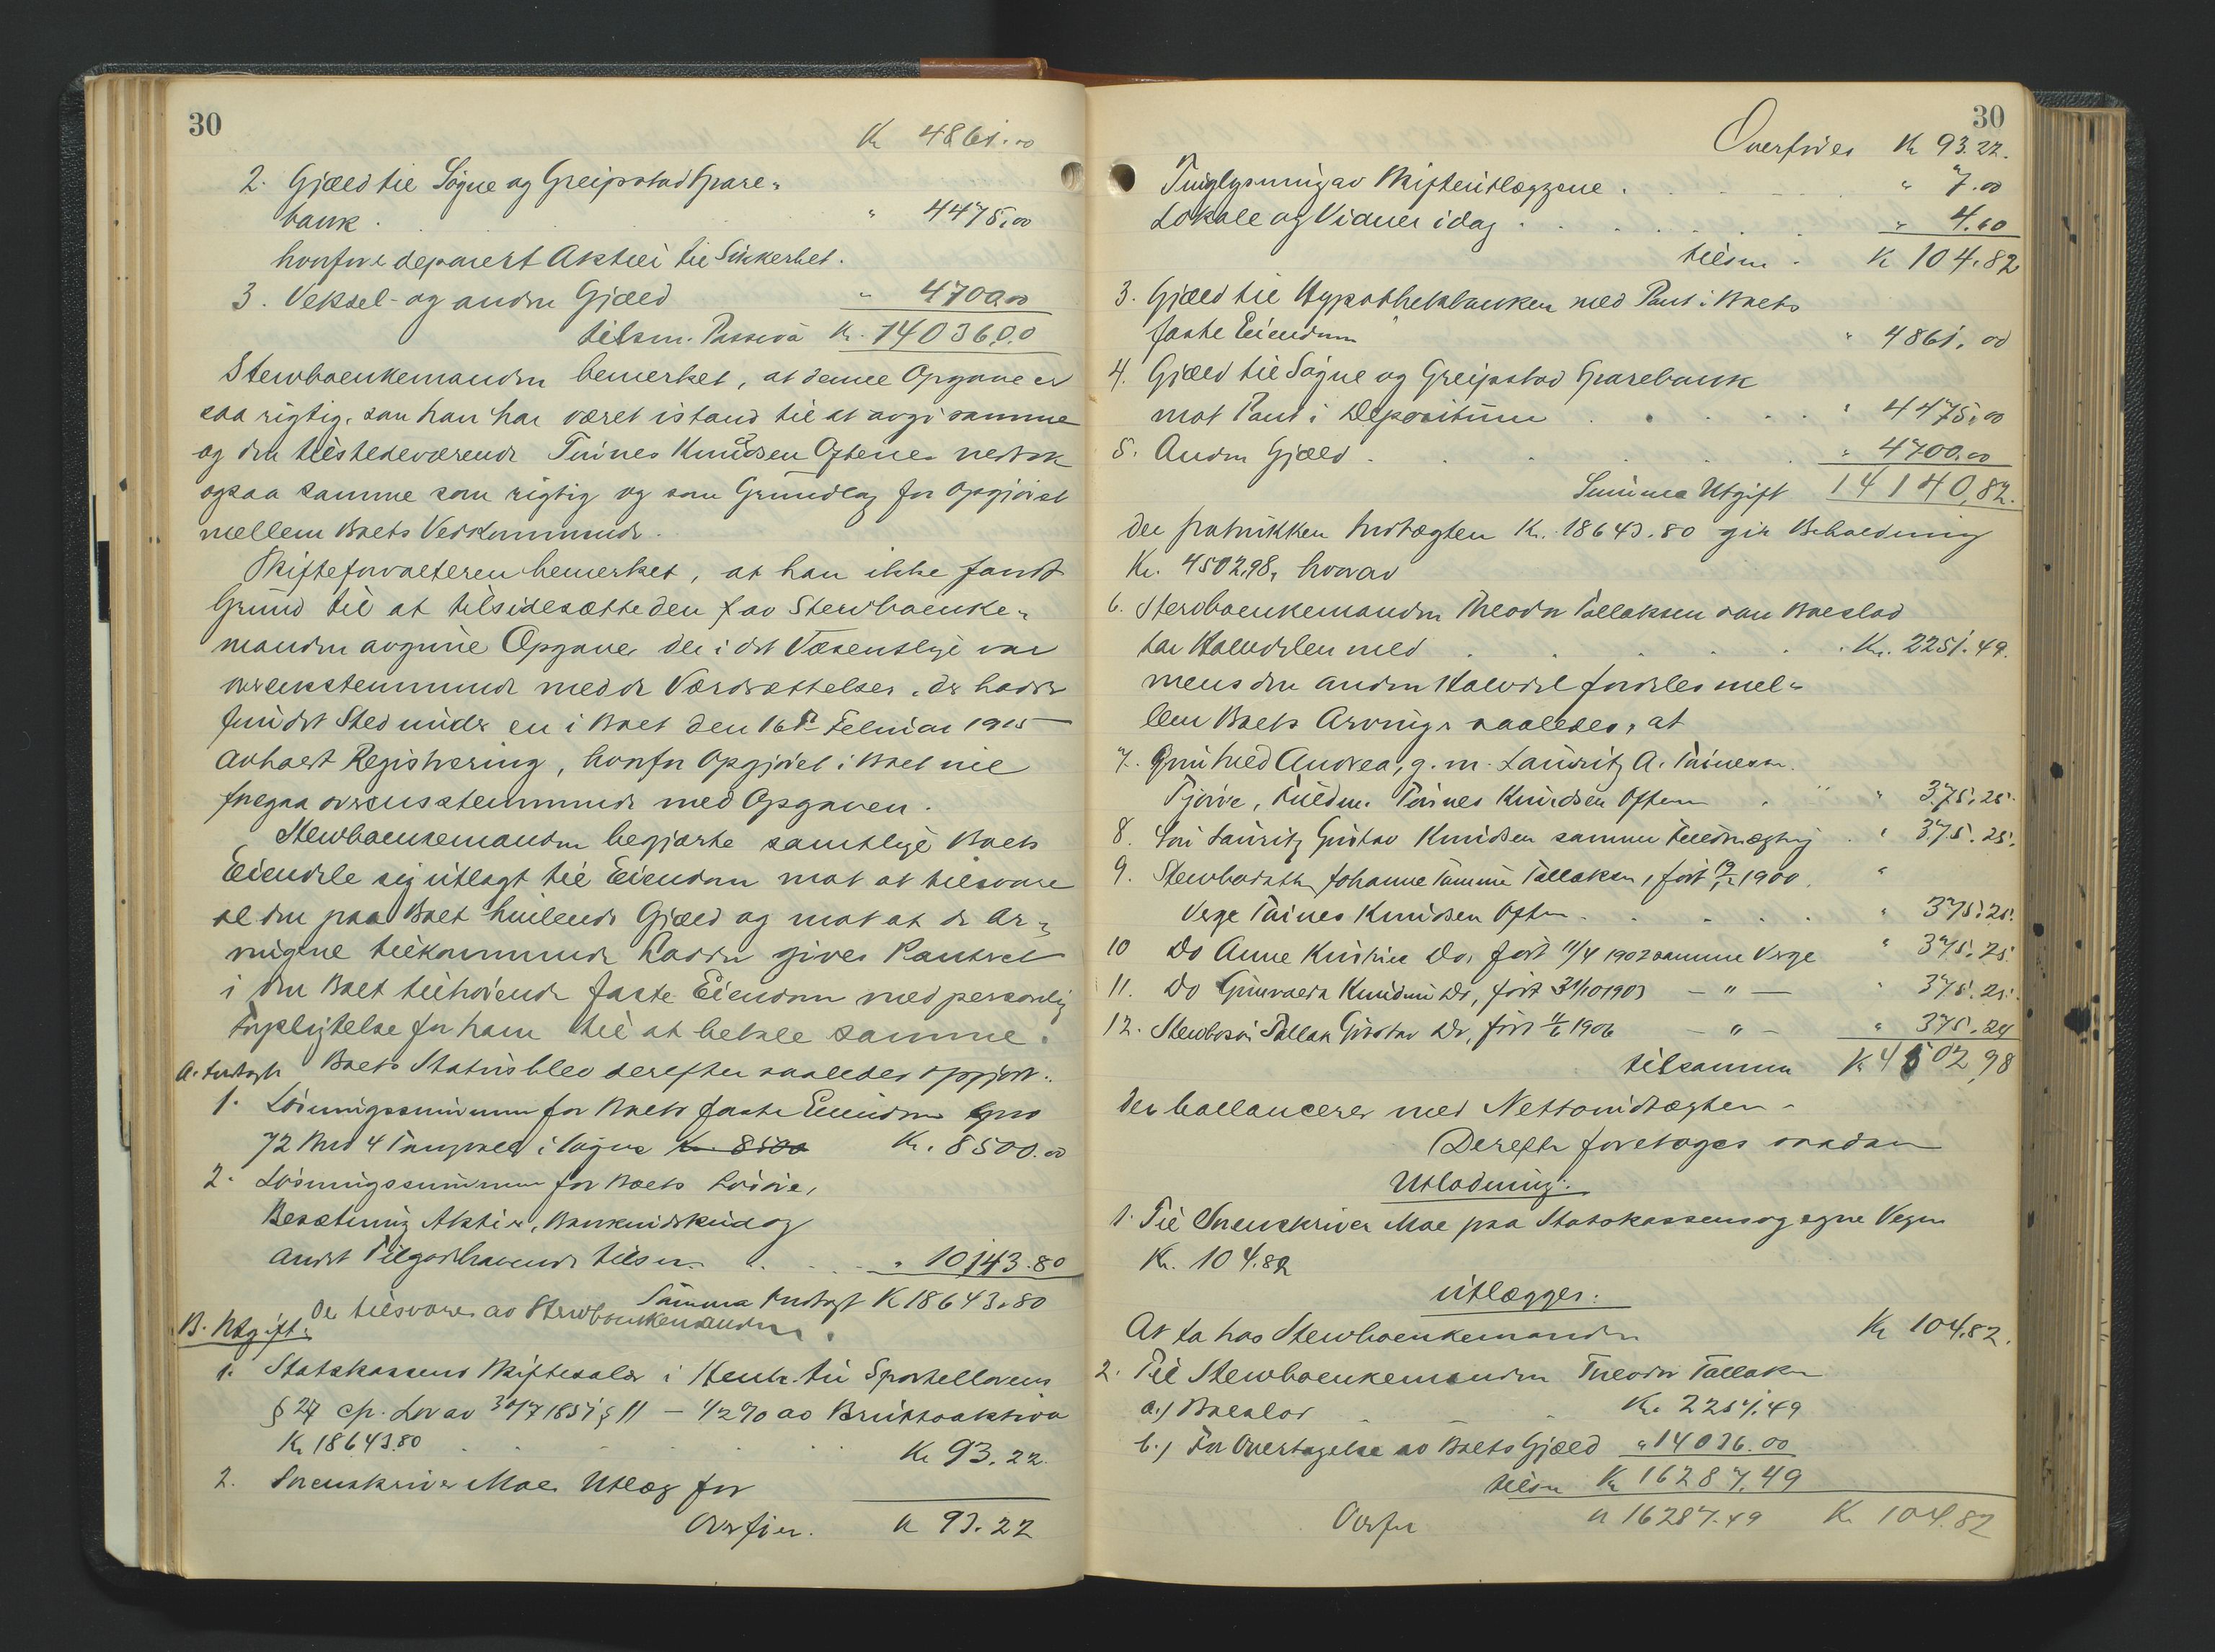 30
Kr 4861.00
2. Gjæld til Søgne og Greipstad Spare-
bank . " 4475,00
hvorfor deponert Aktier til Sikkerhet.
3. Veksel- og anden Gjæld " 4700,00
tilsm. Passiva Kr. 14036,00
Stervboenkemanden bemerket, at denne Opgave er
saa rigtig, som han har været istand til at avgi samme
og den tilstedeværende Tønnes Knudsen Oftenes vedtok
ogsaa samme som rigtig og som Grundlag for Opgjøret
mellem Boets Vedkommende.
Skifteforvalteren bemerket, at han ikke fandt
Grund til at tilsidesætte den av Stervboenke-
manden avgivne Opgave, der i det Væsentlige var
overensstemmende med de Værdsættelser, der hadde
fundet Sted under en i Boet den 16de Februar 1915
avholdt Registrering, hvorfor Opgjøret i Boet vil
foregaa overensstemmende med Opgaven.
Stervboenkemanden begjærte samtlige Boets
Eiendele sig utlagt til Eiendom mot at tilsvare
al den paa Boet hvilende Gjæld og mot at de Ar-
vingene tilkommende Lodder gives Panteret
i den Boet tilhørende faste Eiendom med personlig
Forpligtelse for ham til at betale samme.
Boets Status blev derefter saaledes opgjort:
A. Indtægt
1. Løsningssummen for Boets faste Eiendom Gno
72 Bno 4 Tangvald i Søgne Kr. 8500 Kr. 8500.00
2. Løsningssummen for Boets Løsøre,
Besætning Aktier, Bankindskud og
andet Tilgodehavende tilsm. " 10143.80
Summa Indtægt K 18643.80
Der tilsvares av Stervboenkemanden.
B. Utgift:
1. Statskassens Skiftesalær i Henh. til Sportellovens
§ 27 cfr. Lov av 30/7 1851 § 11 — 1/2 % av Bruttoaktiva
Kr 18643.80 Kr 93.22
2. Sorenskriver Moe Utlæg for
Overføres. Kr 93.22
30
Overføres Kr 93.22.
Tinglysning av Skifteutlæggene . " 7.00
Lokale og Vidner idag . " 4.60
tilsm. K 104.82
3. Gjæld til Hypothekbanken med Pant i Boets
faste Eiendom " 4861.00
4. Gjæld til Søgne og Greipstad Sparebank
mot Pant i Depositum " 4475.00
5. Anden Gjæld . " 4700.00
Summa Utgift 14140,82.
der fratrukken Indtægten Kr. 18643.80 gir Beholdning
Kr. 4502,98, hvorav
6. Stervboenkemanden Theodor Tallaksen som Boeslod
tar Halvdelen med Kr. 2251.49.
mens den anden Halvdel fordeles mel-
lem Boets Arvinger saaledes, at
7. Gunhild Andrea, g. m. Lauritz A. Tønnesen
Tjørve, Fuldm. Tønnes Knudsen Oftenes " 375.25.
8. Søn Lauritz Gustav Knudsen samme Fuldmægtig . " 375.25.
9. Stervbodatter Johanne Tomine Tallaksen, født 1900. "
Verge Tønnes Knudsen Oftenes " 375.25.
10 Do Anne Kristine Do, født 11/4 1902 samme Verge " 375.25.
11. Do Gunvalda Knudine Do, født 31/10 1903 — " — " 375.25.
12. Stervbosøn Tallak Gustav Do, født 1906 — " — " 375.24
tilsammen K 4502,98
der ballancerer med Nettoindtægten.
Derefter foretoges saadan
Utlodning:
1. Til Sorenskriver Moe paa Statskassens og egne Vegne
Kr. 104.82
utlægges:
At ta hos Stervboenkemanden Kr 104.82.
2. Til Stervboenkemanden Theodor Tallaksen
a.) Boeslod Kr. 2251.49
b.) For Overtagelse av Boets Gjæld " 14036.00
tilsm Kr 16287,49
Overføres Kr 16287.49 Kr 104.82